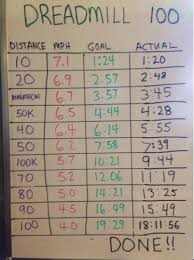 DREADMILL 100
DISTANCE MPH GOAL ACTUAL
10 7.1 1:24 1:20
20 6.9 2:57 2:48
MARATHON 6.7 3:57 3:45
50K 6.5 4:44 4:28
40 6.4 6:14 5:55
50 6.2 7:58 7:39
100K 5.7 10:21 9:44
70 5.2 12:06 11:19
80 5.0 14:21 13:25
90 4.5 16:49 15:49
100 4.0 19:29 18:11:56
DONE!!